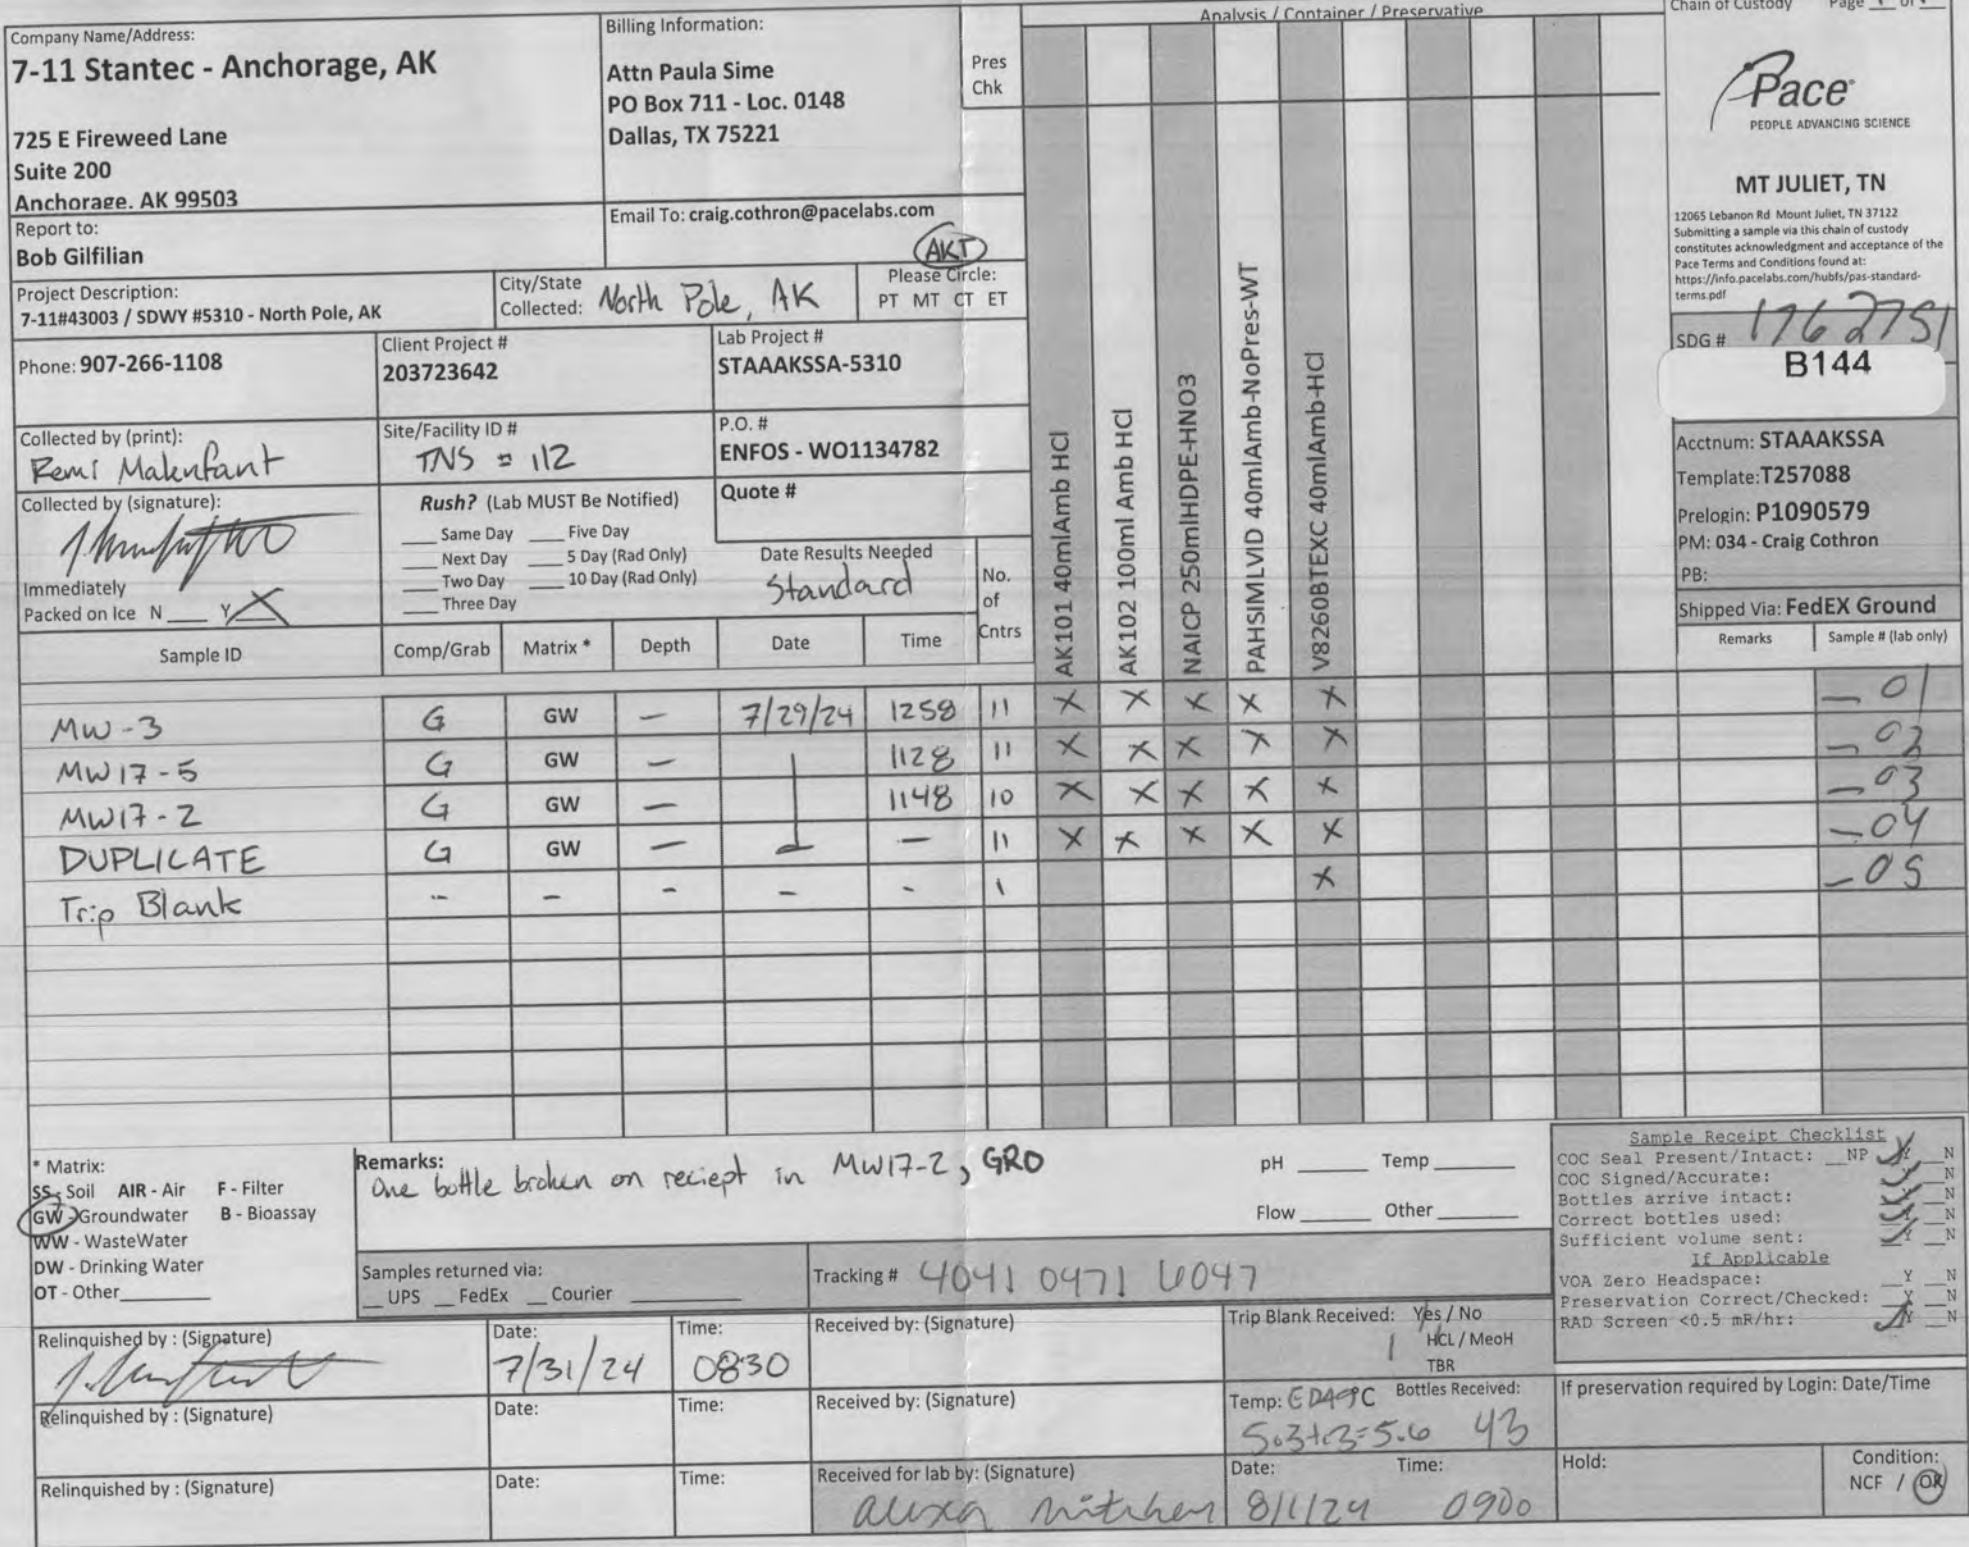 Analysis / Container / Preservative
Chain of Custody Page ___ of ___
Company Name/Address:
7-11 Stantec - Anchorage, AK
725 E Fireweed Lane
Suite 200
Anchorage, AK 99503
Billing Information:
Attn Paula Sime
PO Box 711 - Loc. 0148
Dallas, TX 75221
Pres
Chk
Pace
PEOPLE ADVANCING SCIENCE
MT JULIET, TN
12065 Lebanon Rd Mount Juliet, TN 37122
Submitting a sample via this chain of custody
constitutes acknowledgment and acceptance of the
Pace Terms and Conditions found at:
https://info.pacelabs.com/hubfs/pas-standard-
terms.pdf
Report to:
Bob Gilfilian
Email To: craig.cothron@pacelabs.com
AKT
Project Description:
7-11#43003 / SDWY #5310 - North Pole, AK
City/State
Collected: North Pole, AK
Please Circle:
PT MT CT ET
SDG # 1762751
B144
Phone: 907-266-1108
Client Project #
203723642
Lab Project #
STAAAKSSA-5310
Collected by (print):
Remi Malenfant
Site/Facility ID #
TNS = 112
P.O. #
ENFOS - WO1134782
Acctnum: STAAAKSSA
Template: T257088
Prelogin: P1090579
PM: 034 - Craig Cothron
PB:
Shipped Via: FedEX Ground
Collected by (signature):
Rush? (Lab MUST Be Notified)
___ Same Day ___ Five Day
___ Next Day ___ 5 Day (Rad Only)
___ Two Day ___ 10 Day (Rad Only)
___ Three Day
Quote #
Date Results Needed
Standard
Immediately
Packed on Ice N ___ Y X
No.
of
Cntrs
AK101 40mlAmb HCl
AK102 100ml Amb HCl
NAICP 250mlHDPE-HNO3
PAHSIMLVID 40mlAmb-NoPres-WT
V8260BTEXC 40mlAmb-HCl
Sample ID Comp/Grab Matrix * Depth Date Time Remarks Sample # (lab only)
MW-3 G GW — 7/29/24 1258 11 X X X X X -01
MW17-5 G GW — 1128 11 X X X X X -02
MW17-2 G GW — 1148 10 X X X X X -03
DUPLICATE G GW — — 11 X X X X X -04
Trip Blank - - - - - 1 X -05
* Matrix:
SS - Soil AIR - Air F - Filter
GW - Groundwater B - Bioassay
WW - WasteWater
DW - Drinking Water
OT - Other
Remarks:
One bottle broken on reciept in MW17-2, GRO
pH ___ Temp ___
Flow ___ Other ___
Sample Receipt Checklist
COC Seal Present/Intact: __NP Y __N
COC Signed/Accurate: Y __N
Bottles arrive intact: Y __N
Correct bottles used: Y __N
Sufficient volume sent: Y __N
If Applicable
VOA Zero Headspace: __Y __N
Preservation Correct/Checked: __Y __N
RAD Screen <0.5 mR/hr: Y __N
Samples returned via:
__ UPS __ FedEx __ Courier
Tracking # 4041 0471 6047
Relinquished by : (Signature)
Date:
7/31/24
Time:
0830
Received by: (Signature)
Trip Blank Received: Yes / No
1 HCL / MeoH
TBR
Relinquished by : (Signature)
Date:
Time:
Received by: (Signature)
Temp: °C Bottles Received:
5.3+.3=5.6 43
If preservation required by Login: Date/Time
Relinquished by : (Signature)
Date:
Time:
Received for lab by: (Signature)
Date: 8/1/24
Time: 0900
Hold:
Condition:
NCF / OK